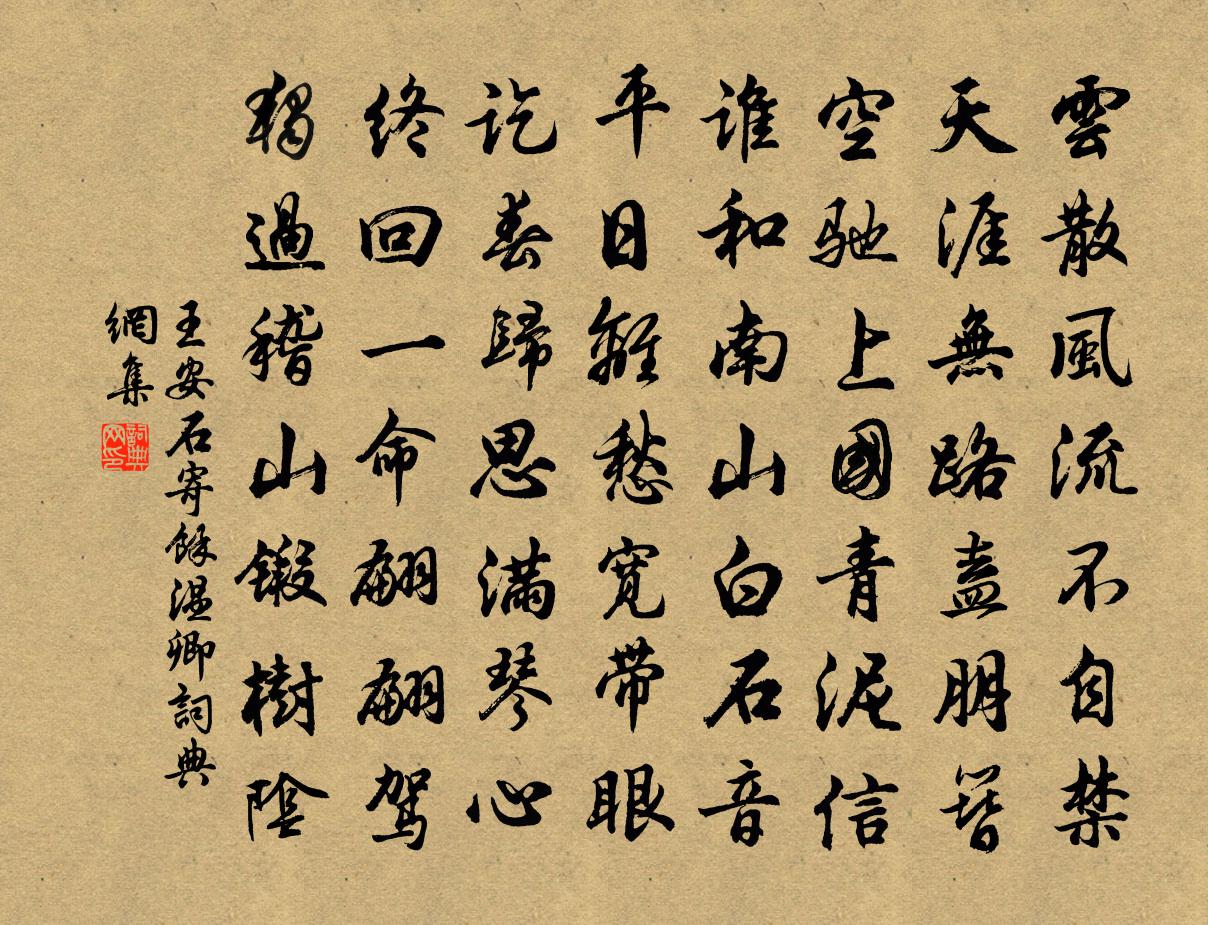 雲散風流不自禁
天涯無路盍朋簪
空馳上國青泥信
谁和南山白石音
平日離愁寛带眼
訖春歸思满琴心
终回一命翩翩驾
独過稽山鍛樹陰
王安石寄餘温卿詞典
網集
詞典网印